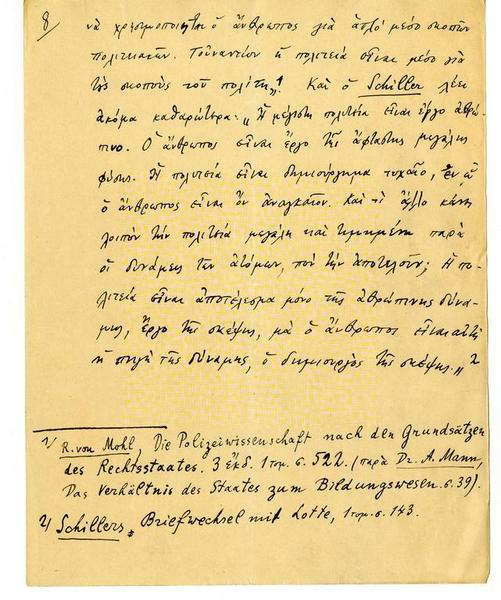 8/
νὰ χρησιμοποιηται ὁ ἄνθρωπος γιὰ ἁπλὸ μέσο σκοπῶν
πολιτειακῶν. Τοὐναντίον ἡ πολιτεία εἶναι μέσο γιὰ
τὴς σκοποὺς τοῦ πολίτη„¹ Καὶ ὁ Schiller λέει
ἀκόμα καθαρώτερα: „Ἡ μεγίστη πολιτεία εἶναι ἔργο ἀθρώ-
πινο. Ὁ ἄνθρωπος εἶναι ἔργο τῆς ἄφταστης μεγάλης
φύσης. Ἡ πολιτεία εἶναι δημιούργημα τυχαῖο, ἐν ᾧ
ὁ ἄνθρωπος εἶναι ὂν ἀναγκαῖον. Καὶ τί ἄλλο κάνει
λοιπὸν τὴν πολιτεία μεγάλη καὶ τιμημένη παρὰ
οἱ δυνάμεις τῶν ἀτόμων, ποὺ τὴν ἀποτελοῦν; Ἡ πο-
λιτεία εἶναι ἀποτέλεσμα μόνο τῆς ἀθρώπινης δύνα-
μης, ἔργο τῆς σκέψης, μὰ ὁ ἄνθρωπος εἶναι αὐτὴ
ἡ πηγὴ τῆς δύναμης, ὁ δημιουργὸς τῆς σκέψης.„²
1/ R. von Mohl, Die Polizeiwissenschaft nach den Grundsätzen
des Rechtsstaates. 3 ἔκδ. 1 τομ. σ. 522. (παρὰ Dr. A. Mann,
Das Verhältnis des Staates zum Bildungswesen. σ. 39).
2/ Schillers, Briefwechsel mit Lotte, 1 τομ. σ. 143.